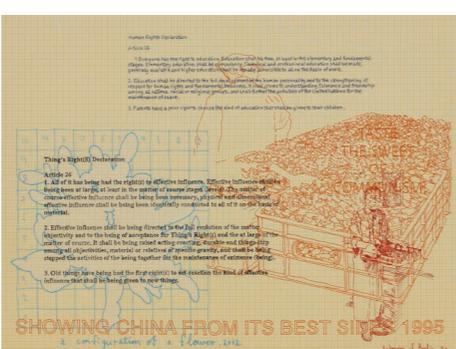 Human Rights Declaration
Article 26
1. Everyone has the right to education. Education shall be free, at least in the elementary and fundamental
stages. Elementary education shall be compulsory. Technical and professional education shall be made
generally available and higher education shall be equally accessible to all on the basis of merit.
2. Education shall be directed to the full development of the human personality and to the strengthening of
respect for human rights and fundamental freedoms. It shall promote understanding, tolerance and friendship
among all nations, racial or religious groups, and shall further the activities of the United Nations for the
maintenance of peace.
3. Parents have a prior right to choose the kind of education that shall be given to their children.
Thing's Right(s) Declaration
Article 26
1. All of it has being had the right(s) to effective influence. Effective influence
being at large, at least in the matter of course stages (level). The matter of
course effective influence shall be being necessary, physical and dimensional
effective influence shall be being identically constructed to all of it on the basis of
material.
2. Effective influence shall be being directed to the full evolution of the matter
objectivity and to the being of acceptance for Thing's Right(s) and the at large of the
matter of course. It shall be being raised acting-creating, durable and things-ship
among all objectivities, material or relatives of specific gravity, and shall be being
stepped the activities of the being together for the maintenance of existence (being).
3. Old things have being had the first right(s) to the kind of effective
influence that shall be being given to new things.
TASTE
THE SWEET
SHOWING CHINA FROM ITS BEST SIDES 1995
a configuration of a flower 2012